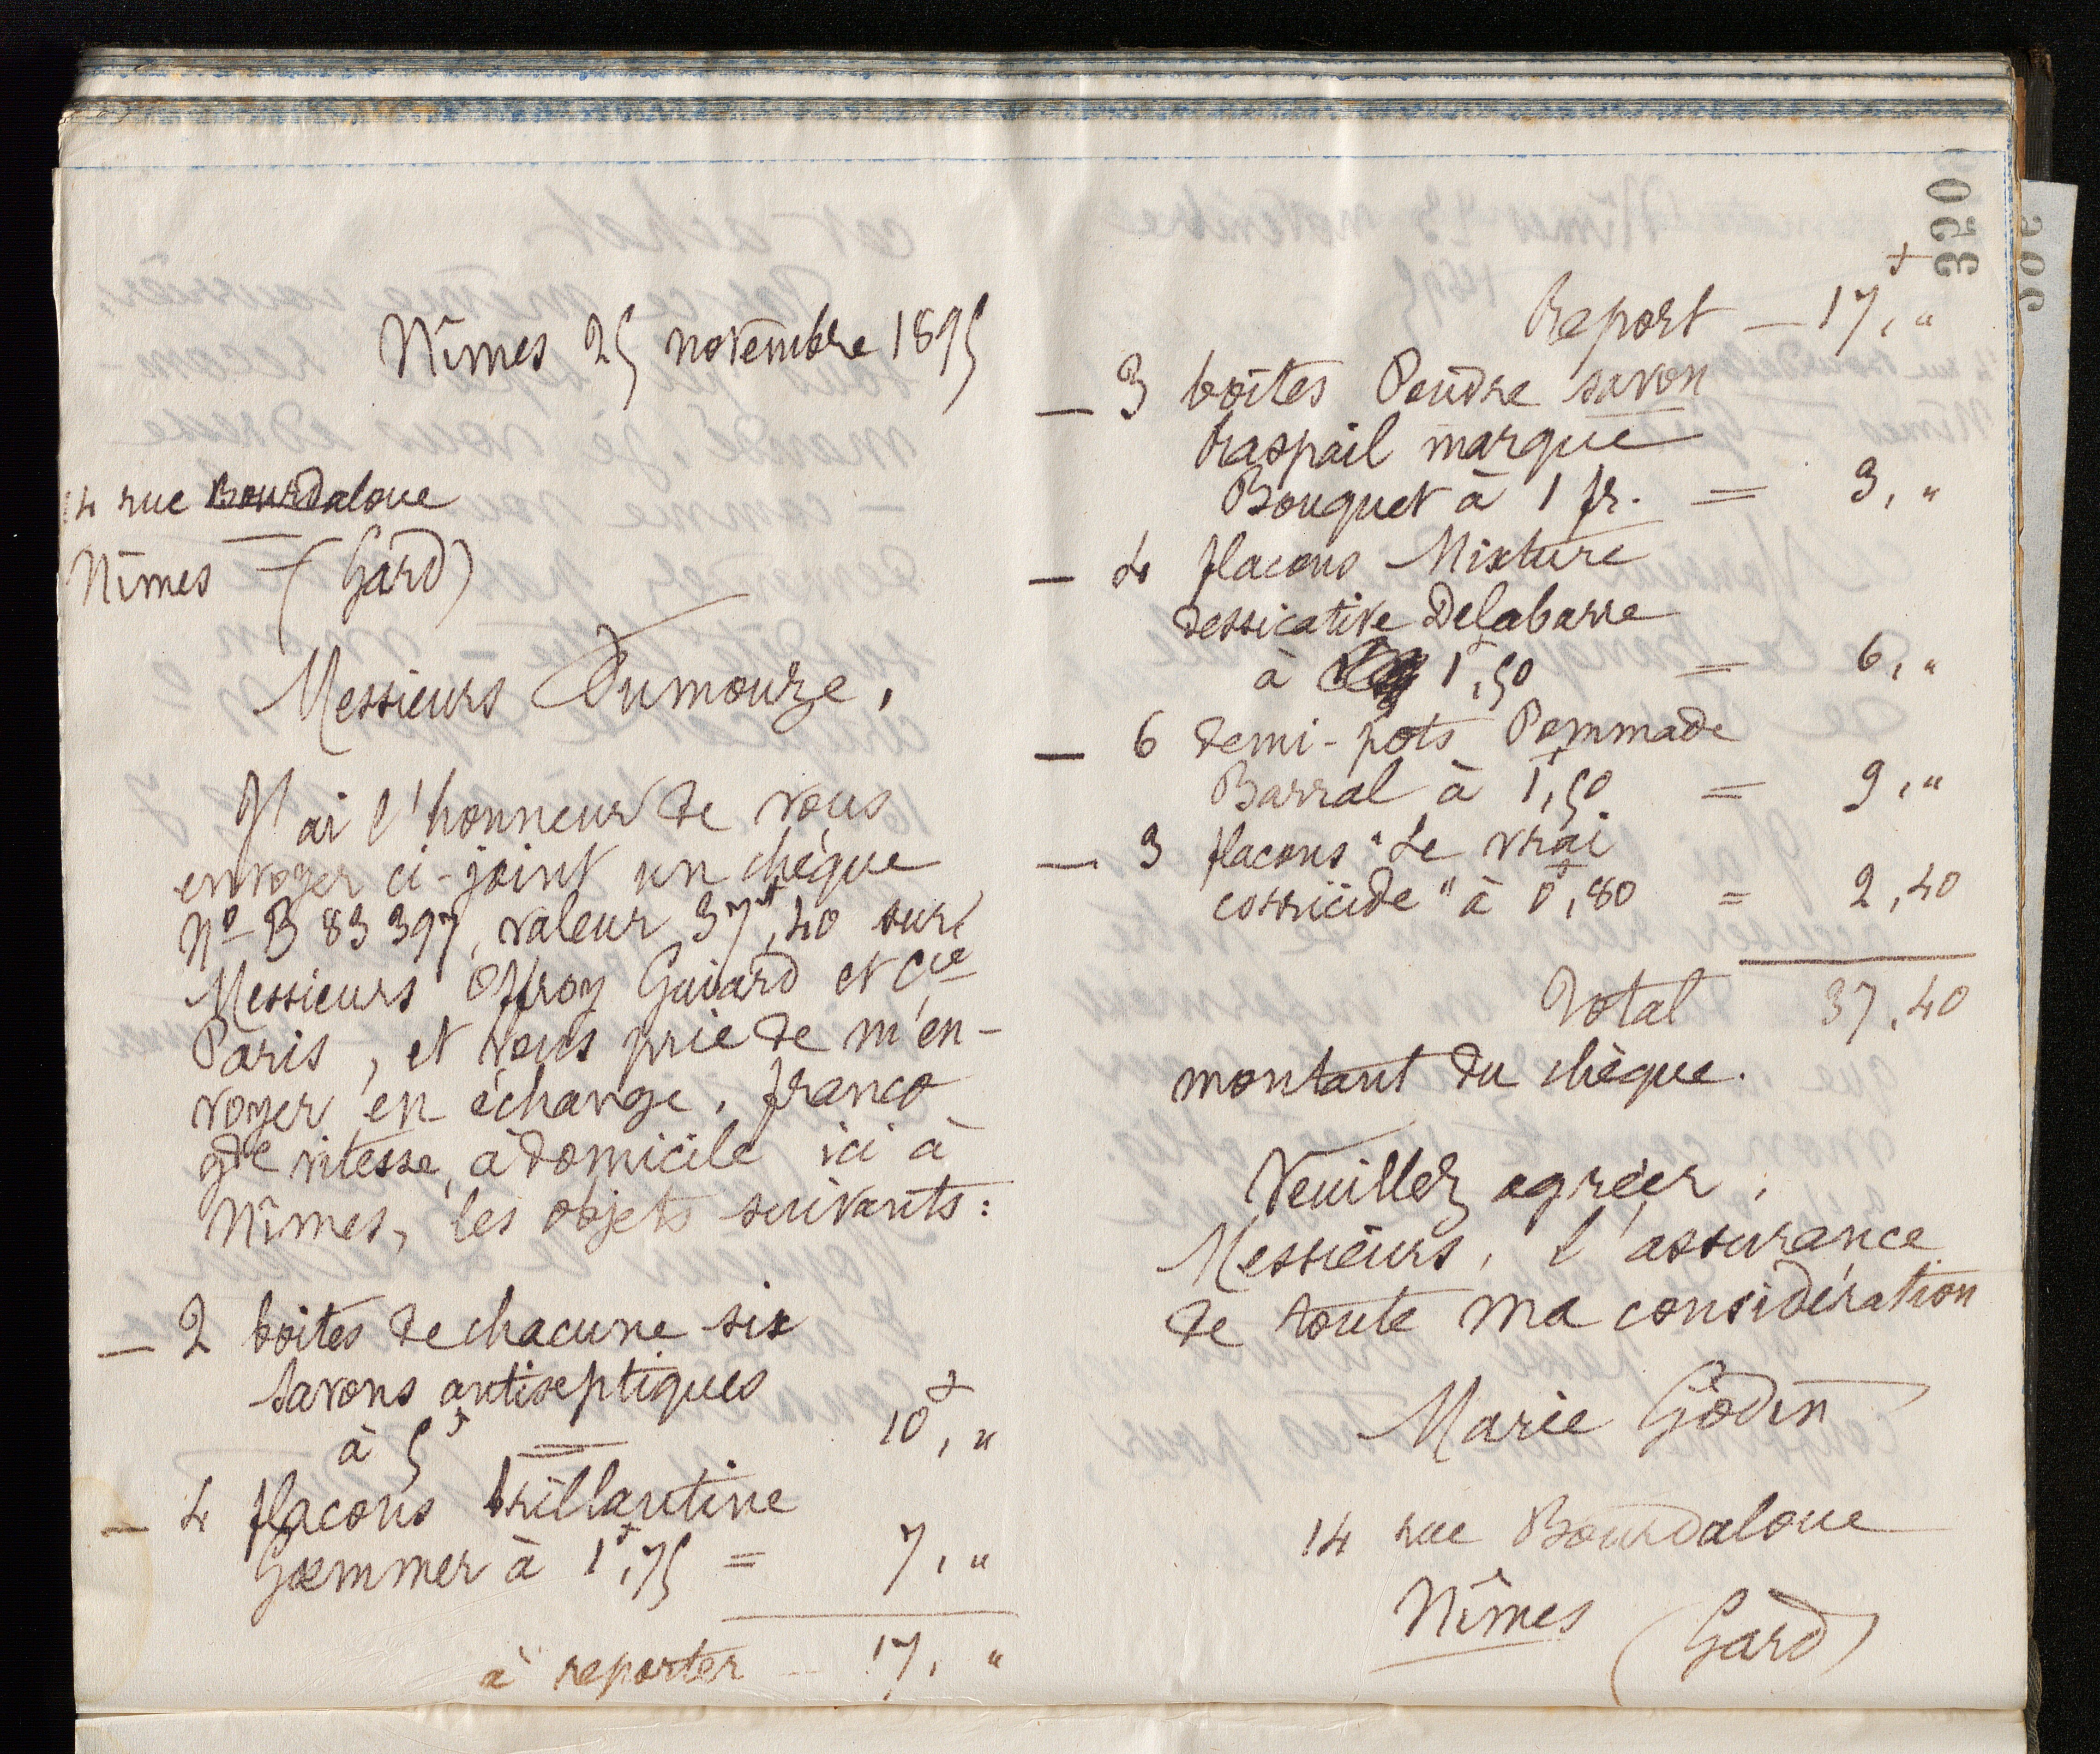 Nîmes 25 novembre 1895
14 rue Bourdaloue
Nîmes – (Gard)
Messieurs Dumouze,
J'ai l'honneur de vous
envoyer ci-joint un chèque
Nº B 83 397, valeur 37f,40 sur
Messieurs Offroy Guiard et Cie
Paris, et vous prie de m'en-
voyer en échange, franco
gde vitesse, à domicile ici à
Nîmes, les objets suivants :
— 2 boites de chacune six
savons antiseptiques
à 5f = 10f, "
— 4 flacons brillantine
Gœmmer à 1f,75 = 7, "
à reporter — 17, "
350
Report — 17f, "
— 3 boîtes Poudre savon
Raspail marque
Bouquet à 1 fr. = 3, "
— 4 flacons Mixture
dessicative Delabarre
à 1f,50 = 6, "
— 6 demi-pots Pommade
Barral à 1f,50 = 9, "
— 3 flacons "Le vrai
corricide" à 0f,80 = 2,40
Total 37,40
montant du chèque.
Veuillez agréer,
Messieurs, l'assurance
de toute ma considération
Marie Godin
14 rue Bourdaloue
Nîmes (Gard)